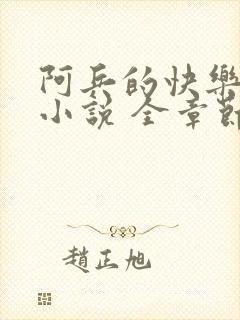 阿兵的快樂
小說 全章節
趙正旭